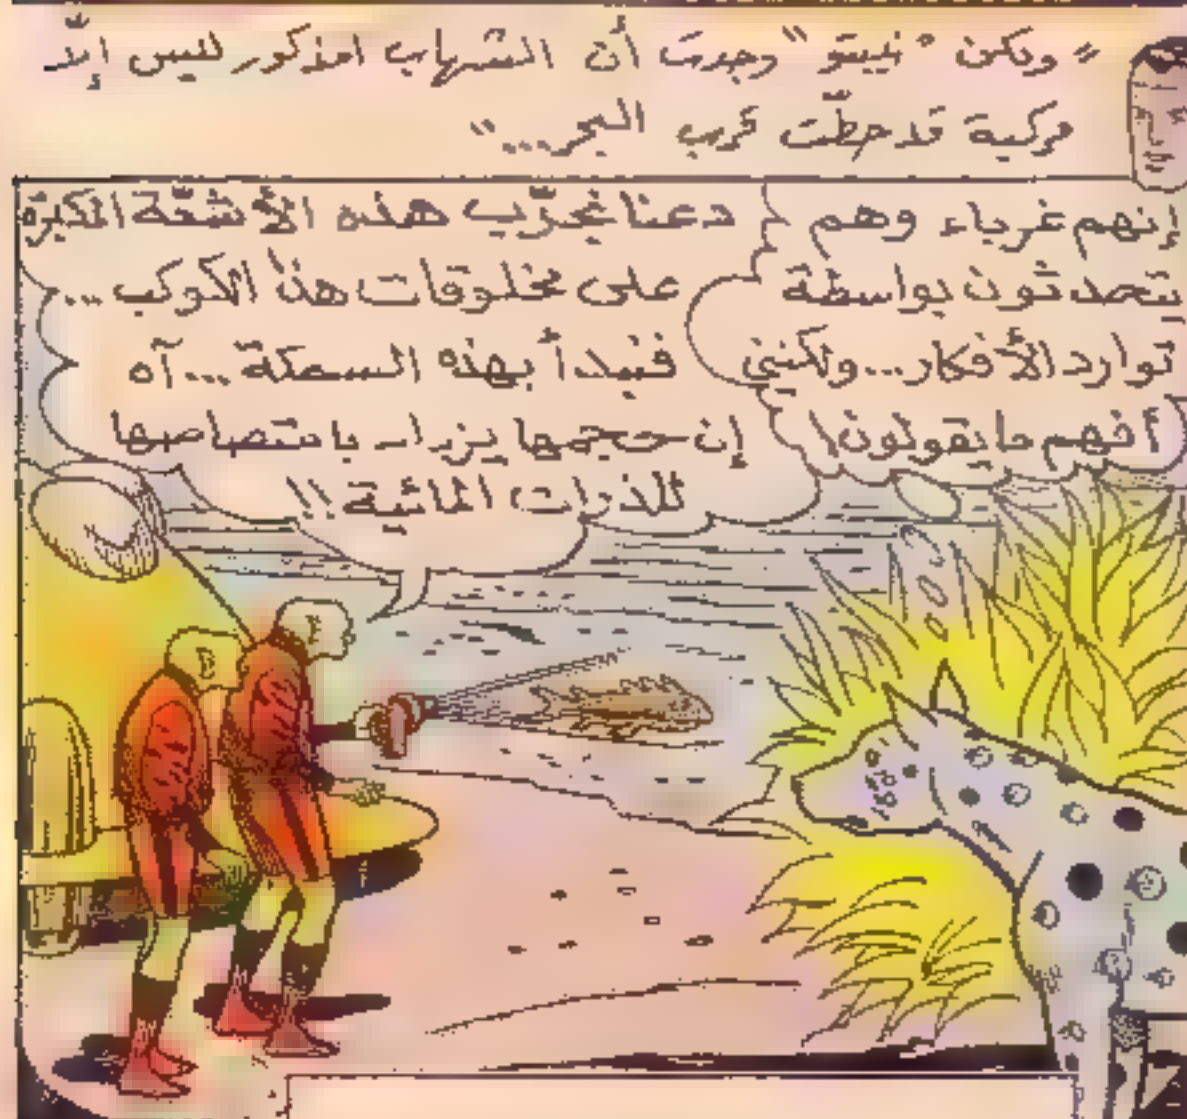 "ولكن "نيبتو" وجدت أن الشهاب المذكور ليس إلّا
مركبة قد حطّت قرب البحر..."
إنهم غرباء وهم
يتحدثون بواسطة
توارد الأفكار...ولكنني
أفهم ما يقولون!
دعنا نجرّب هذه الأشعّة المكبرة
على مخلوقات هذا الكوكب...
فنبدأ بهذه السمكة...آه
إن حجمها يزداد بامتصاصها
للذرات المائية!!